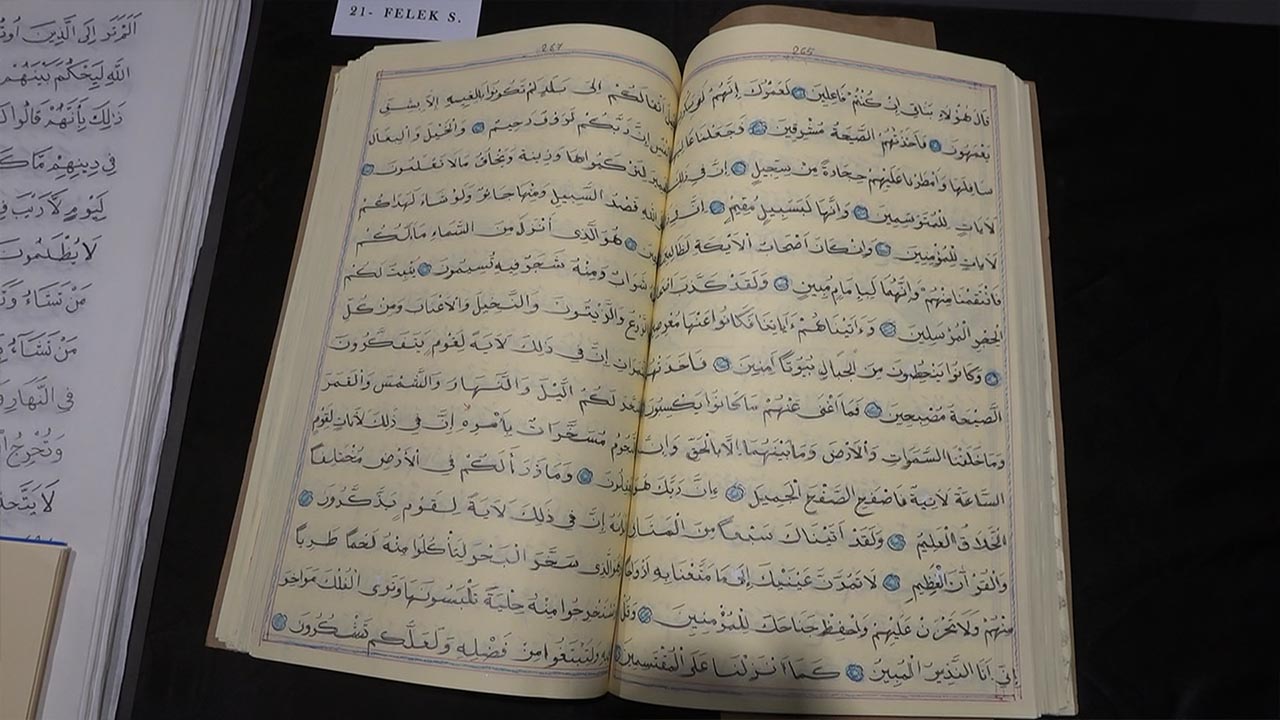 21- FELEK S.
265
قَالَ هٰؤُلَاءِ بَنَاتِي اِنْ كُنْتُمْ فَاعِلِينَ لَعَمْرُكَ اِنَّهُمْ
يَعْمَهُونَ فَاَخَذَتْهُمُ الصَّيْحَةُ مُشْرِقِينَ فَجَعَلْنَا
سَافِلَهَا وَاَمْطَرْنَا عَلَيْهِمْ حِجَارَةً مِنْ سِجِّيلٍ اِنَّ فِي ذٰلِكَ
لَاٰيَاتٍ لِلْمُتَوَسِّمِينَ وَاِنَّهَا لَبِسَبِيلٍ مُقِيمٍ اِنَّ
لَاٰيَاتٍ لِلْمُؤْمِنِينَ وَاِنْ كَانَ اَصْحَابُ الْاَيْكَةِ لَظَالِمِينَ
فَانْتَقَمْنَا مِنْهُمْ وَاِنَّهُمَا لَبِاِمَامٍ مُبِينٍ وَلَقَدْ كَذَّبَ
الْحِجْرِ الْمُرْسَلِينَ وَءَاتَيْنَاهُمْ ءَايَاتِنَا فَكَانُوا عَنْهَا
وَكَانُوا يَنْحِتُونَ مِنَ الْجِبَالِ بُيُوتًا اٰمِنِينَ فَاَخَذَتْهُمُ
الصَّيْحَةُ مُصْبِحِينَ فَمَا اَغْنَى عَنْهُمْ مَا كَانُوا يَكْسِبُونَ
وَمَا خَلَقْنَا السَّمٰوَاتِ وَالْاَرْضَ وَمَا بَيْنَهُمَا اِلَّا بِالْحَقِّ وَاِنَّ
السَّاعَةَ لَاٰتِيَةٌ فَاصْفَحِ الصَّفْحَ الْجَمِيلَ اِنَّ رَبَّكَ هُوَ
الْخَلَّاقُ الْعَلِيمُ وَلَقَدْ اٰتَيْنَاكَ سَبْعًا مِنَ الْمَثَانِي
وَالْقُرْاٰنَ الْعَظِيمَ لَا تَمُدَّنَّ عَيْنَيْكَ اِلَى مَا مَتَّعْنَا بِهِ اَزْوَاجًا
مِنْهُمْ وَلَا تَحْزَنْ عَلَيْهِمْ وَاخْفِضْ جَنَاحَكَ لِلْمُؤْمِنِينَ وَقُلْ
اِنِّي اَنَا النَّذِيرُ الْمُبِينُ كَمَا اَنْزَلْنَا عَلَى الْمُقْتَسِمِينَ
267
اَثْقَالَكُمْ اِلَى بَلَدٍ لَمْ تَكُونُوا بَالِغِيهِ اِلَّا بِشِقِّ
اِنَّ رَبَّكُمْ لَرَؤُفٌ رَحِيمٌ وَالْخَيْلَ وَالْبِغَالَ
لِتَرْكَبُوهَا وَزِينَةً وَيَخْلُقُ مَا لَا تَعْلَمُونَ
اللّٰهِ قَصْدُ السَّبِيلِ وَمِنْهَا جَائِرٌ وَلَوْ شَاءَ لَهَدَاكُمْ
هُوَ الَّذِي اَنْزَلَ مِنَ السَّمَاءِ مَاءً لَكُمْ
شَرَابٌ وَمِنْهُ شَجَرٌ فِيهِ تُسِيمُونَ يُنْبِتُ لَكُمْ
الزَّرْعَ وَالزَّيْتُونَ وَالنَّخِيلَ وَالْاَعْنَابَ وَمِنْ كُلِّ
الثَّمَرَاتِ اِنَّ فِي ذٰلِكَ لَاٰيَةً لِقَوْمٍ يَتَفَكَّرُونَ
لَكُمُ الَّيْلَ وَالنَّهَارَ وَالشَّمْسَ وَالْقَمَرَ
مُسَخَّرَاتٌ بِاَمْرِهِ اِنَّ فِي ذٰلِكَ لَاٰيَاتٍ لِقَوْمٍ
يَعْقِلُونَ وَمَا ذَرَاَ لَكُمْ فِي الْاَرْضِ مُخْتَلِفًا
اِنَّ فِي ذٰلِكَ لَاٰيَةً لِقَوْمٍ يَذَّكَّرُونَ
الَّذِي سَخَّرَ الْبَحْرَ لِتَاْكُلُوا مِنْهُ لَحْمًا طَرِيًّا
وَتَسْتَخْرِجُوا مِنْهُ حِلْيَةً تَلْبَسُونَهَا وَتَرَى الْفُلْكَ مَوَاخِرَ
وَلِتَبْتَغُوا مِنْ فَضْلِهِ وَلَعَلَّكُمْ تَشْكُرُونَ
اَلَمْ تَرَ اِلَى الَّذِينَ
اللّٰهِ لِيَحْكُمَ بَيْنَهُمْ
ذٰلِكَ بِاَنَّهُمْ قَالُوا
فِي دِينِهِمْ مَا
لِيَوْمٍ لَا رَيْبَ
لَا يُظْلَمُونَ
مَنْ تَشَاءُ
مَنْ تَشَاءُ
فِي النَّهَارِ
وَتُخْرِجُ
لَا يَتَّخِذِ